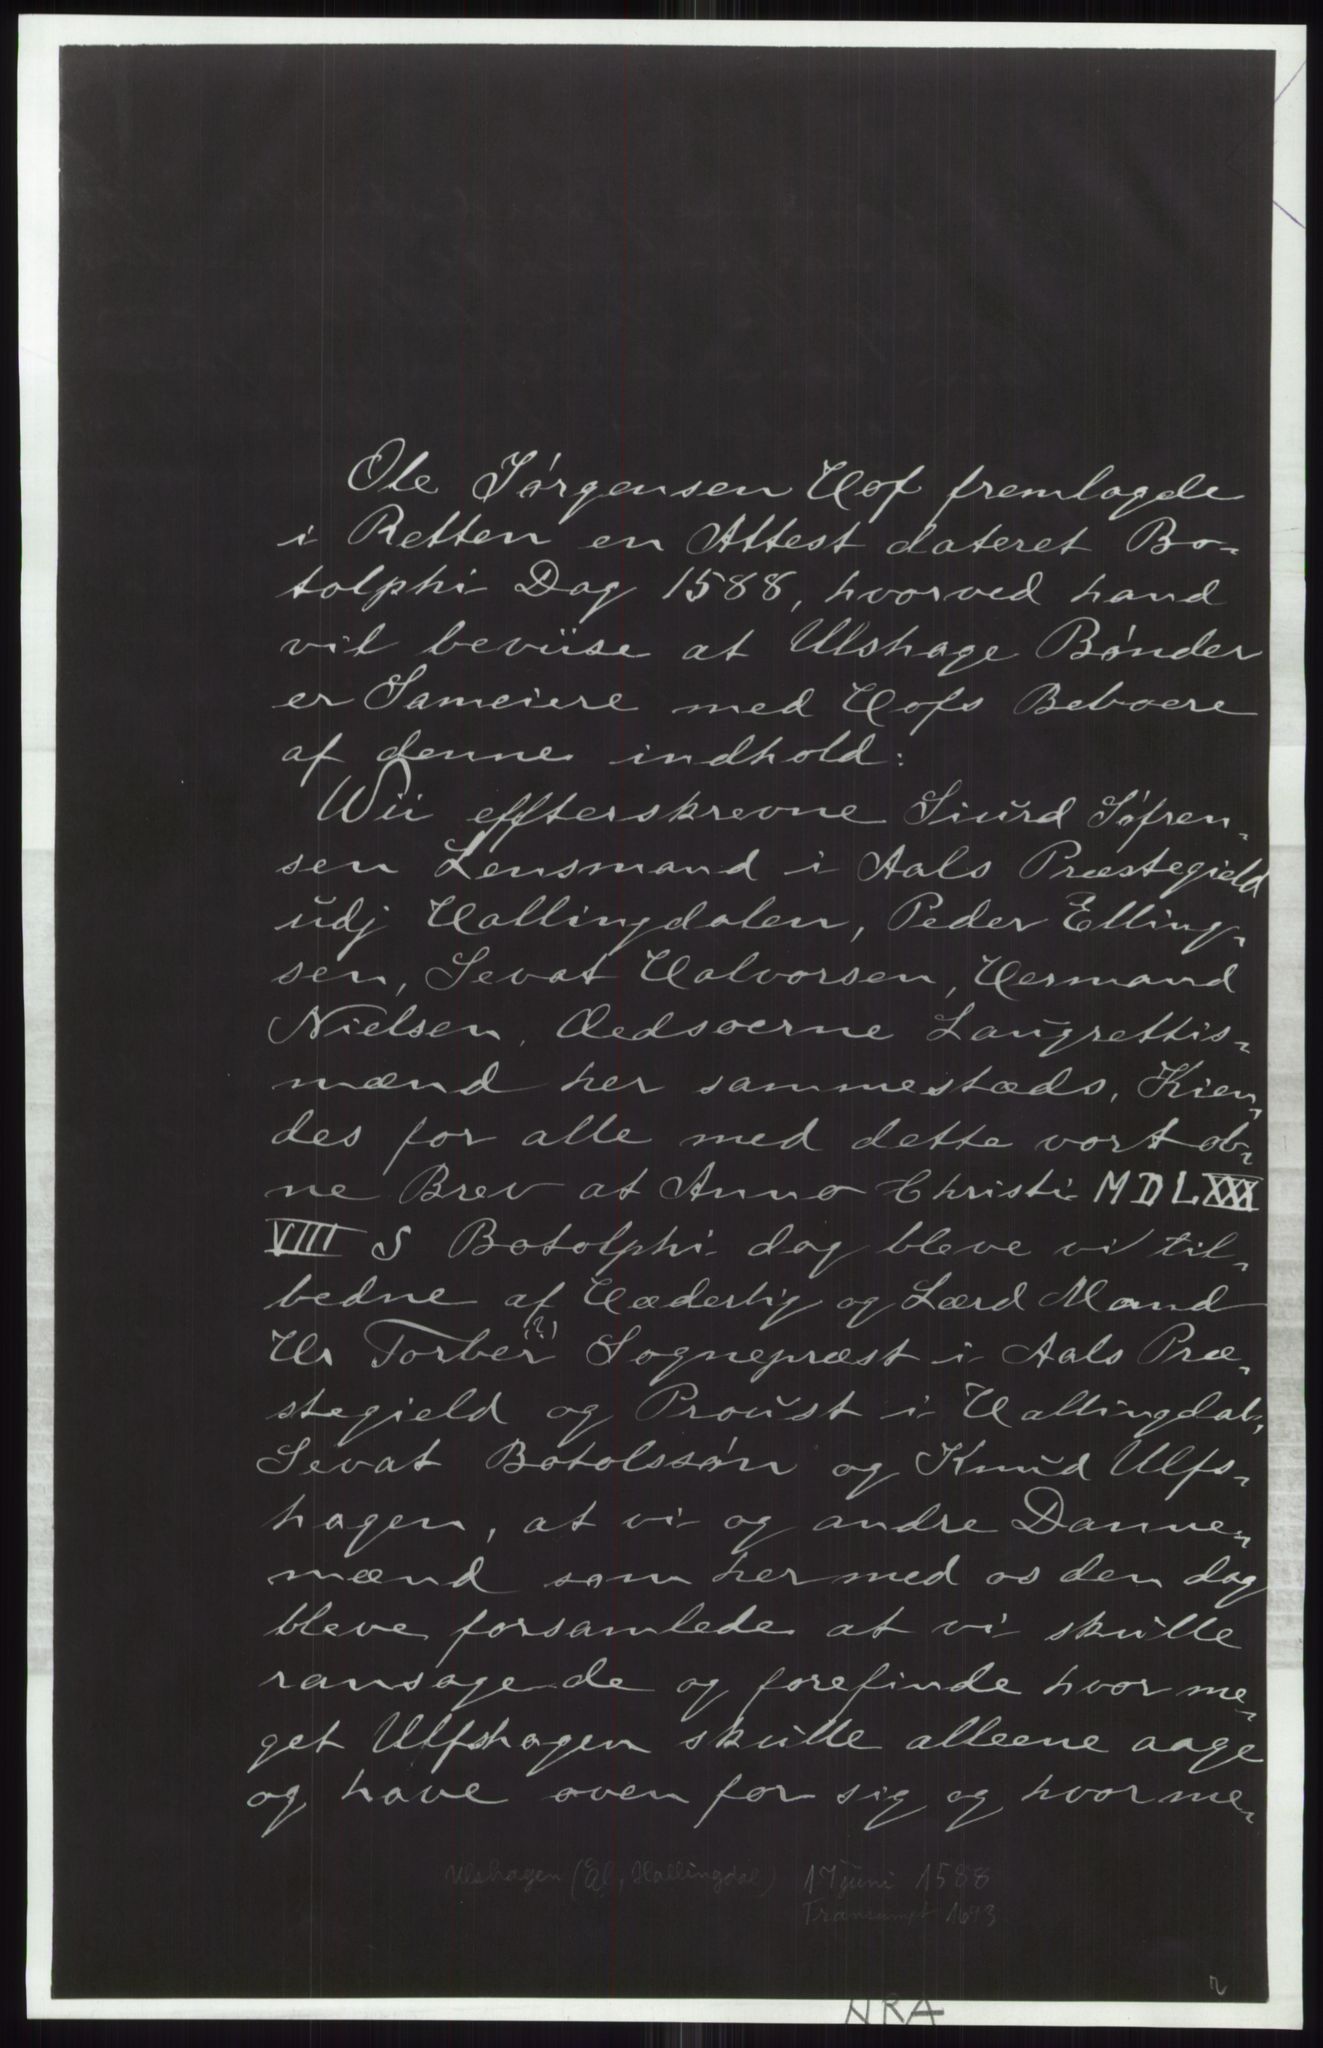 Ole Jørgensen Hof fremlagde
i Retten en Attest dateret Bo-
tolphi Dag 1588, hvorved hand
vil beviise at Ulshage Bønder
er Sameiere med Hofs Beboere
af denne indhold:
Wii effterskrevne Siurd Søfren-
sen Lensmand i Aals Præstegield
udj Hallingdalen, Peder Elling-
sen, Sevat Halvorsen, Hermand
Nielsen, Aedsoerne Laugrettis-
mænd her sammestæds, Kien-
des for alle med dette vort ob-
ne Brev at Anno Christi MDLXXX
VIII S Botolphi dag bleve vi til-
bedne af Hæderlig og Lærd Mand
Hr Torber (?) Sognepræst i Aals Præ-
stegield og Proust i Hallingdal,
Sevat Botolssøn og Knud Ulfs-
hagen, at vi og andre Danne-
mænd som her med os den dag
bleve forsamlede at vi skulle
ransage de og forefinde hvor me-
get Ulfshagen skulle alleene aage
og have oven for sig og hvor me-
Ulshagen (Ål, Hallingdal) 17 juni 1588
Transumpt 1693
2
NRA